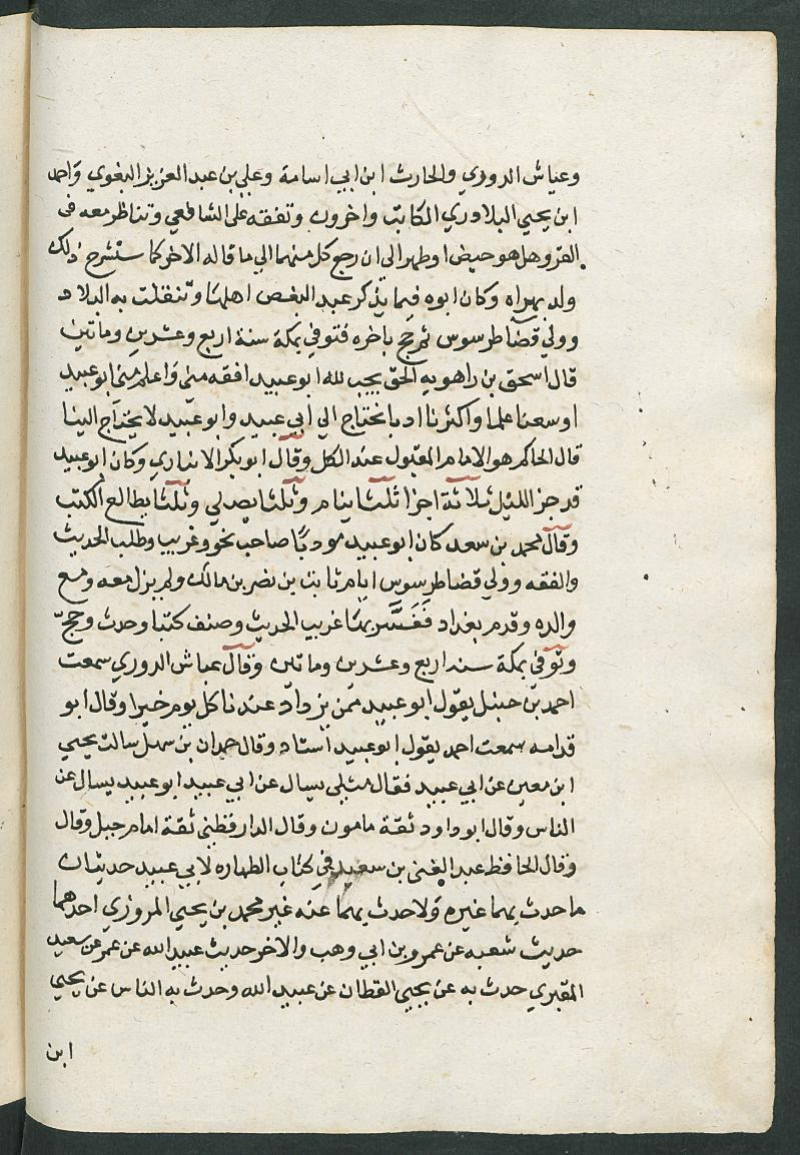 وعباس الدوري والحارث ابن ابي اسامة وعلي بن عبد العزيز البغوي واحمد
ابن يحيي البلادري الكاتب واخرون وتفقه على الشافعي وتناظر معه في
القرو هل هو حيض او طهر الي ان رجع كل منهما الي ما قاله الاخر كما سنشرح ذلك
ولد بهراه وكان ابوه فيما يذكر عبد البعض اهلها وتنقلت به البلاد
وولي قضا طرسوس ثم حج باخره فتوفي بمكة سنة اربع وعشرين وماتين
قال اسحق بن راهويه الحق يجب لله ابو عبيد افقه مني واعلم مني ابو عبيد
اوسعنا علما واكثرنا ادبا نحتاج الي ابي عبيد وابو عبيد لا يحتاج الينا
قال الحاكم هو الامام المقبول عند الكل وقال ابو بكر الانباري وكان ابو عبيد
قد جز الليل ثلاثة اجزا ثلثا ينام وثلثا يصلي وثلثا يطالع الكتب
وقال محمد بن سعد كان ابو عبيد مودبا صاحب نحو وغريب وطلب الحديث
والفقه وولي قضا طرسوس ايام ثابت بن نصر بن مالك ولم يزل معه ومع
والده وقدم بغداد ففسر بها غريب الحديث وصنف كتبا وحدث وحج
وتوفي بمكة سنه اربع وعشرين وماتين وقال عباس الدوري سمعت
احمد بن حنبل يقول ابو عبيد ممن يزداد عندنا كل يوم خيرا وقال ابو
قدامه سمعت احمد يقول ابو عبيد استاد وقال حمدان بن سهل سالت يحيي
ابن معين عن ابي عبيد فقال مثلي يسال عن ابي عبيد ابو عبيد يسال عن
الناس وقال ابو داود ثقة مامون وقال الدارقطني ثقة امام جبل وقال
وقال الحافظ عبد الغني بن سعيد في كتاب الطهاره لابي عبيد حديثان
ما حدث بهما غيره ولا حدث بهما عنه غير محمد بن يحيي المروزي احدهما
حديث شعبه عن عمرو بن ابي وهب والاخر حديث عبيد الله عن عمر عن سعيد
المقبري حدث به عن يحيي القطان عن عبيد الله وحدث به الناس عن يحيي
ابن